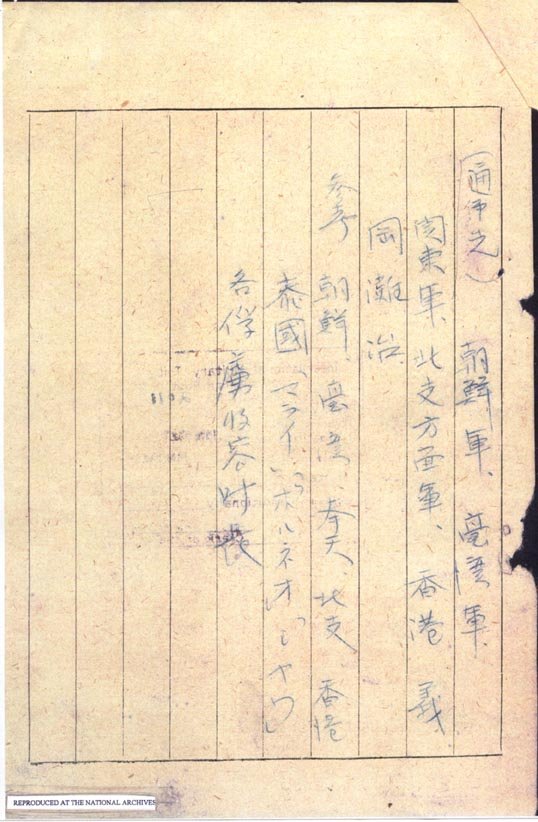 (通 先) 朝鮮軍、臺灣軍、
関東軍、北支方面軍、香港 義
岡 灘 治
参考 朝鮮、臺湾、奉天、北支 香港
泰國 マライ、「ボルネオ」「ジャワ」
各俘虜收容所長
REPRODUCED AT THE NATIONAL ARCHIVES